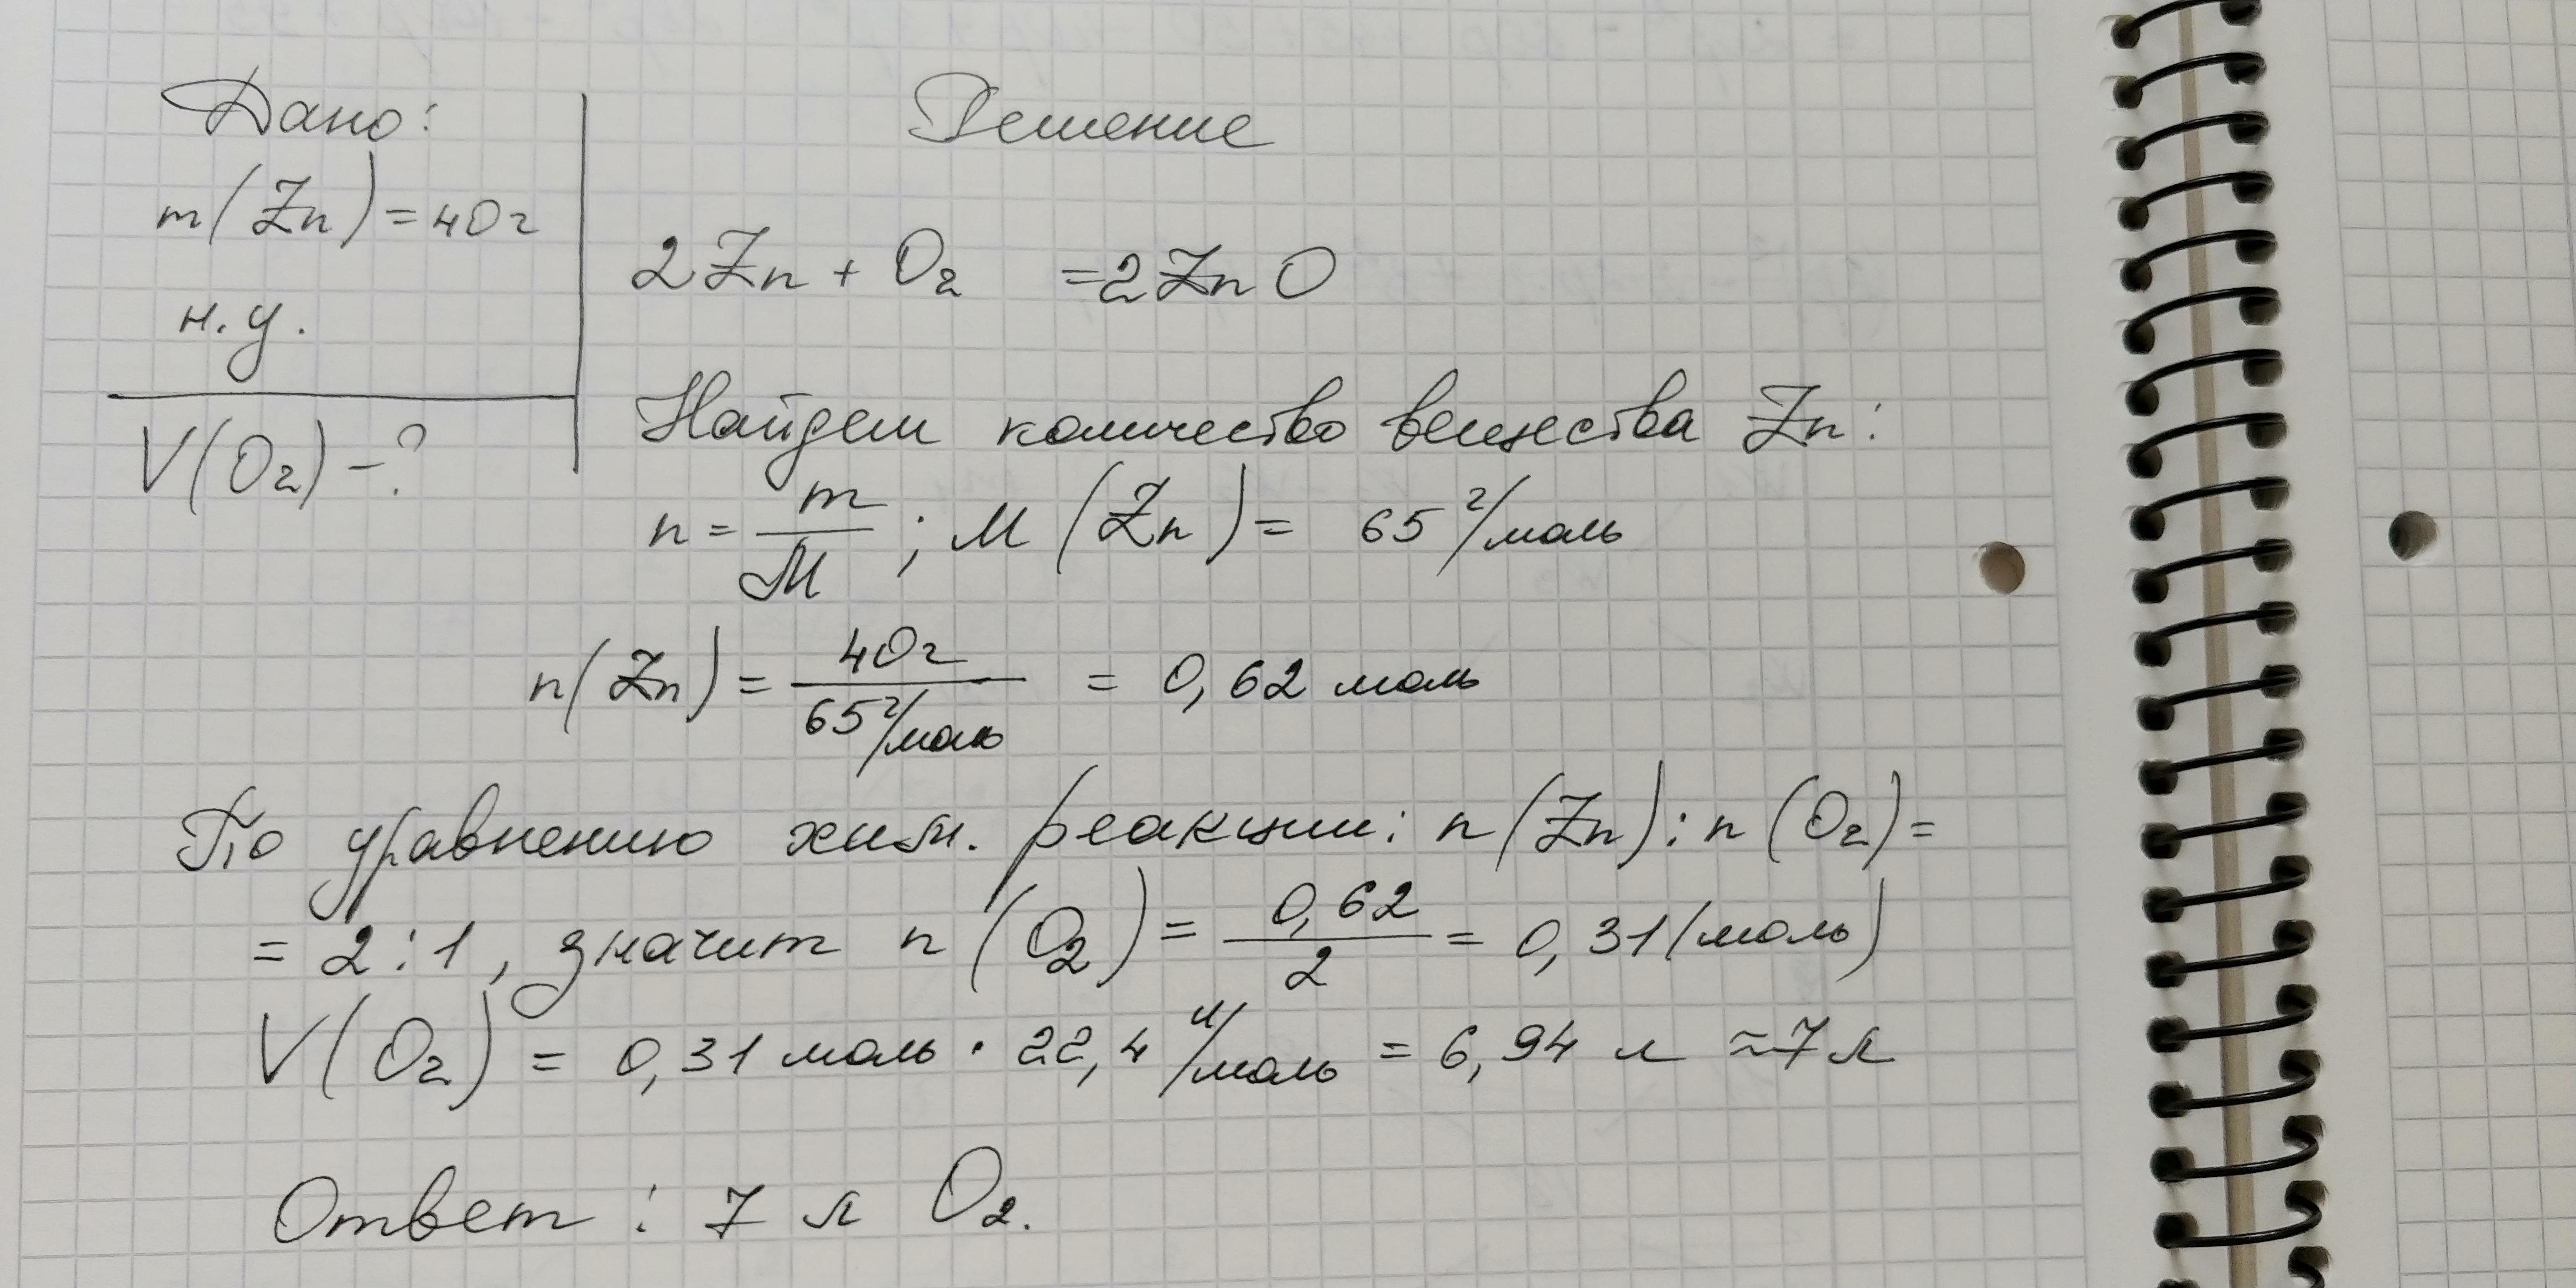 Дано:
m(Zn)=40г
н.у.
V(O₂)-?
Решение
2Zn + O₂ =2ZnO
Найдем количество вещества Zn:
n = m/M ; M (Zn) = 65 г/моль
n(Zn) = 40г/65 г/моль = 0,62 моль
По уравнению хим. реакции: n(Zn) : n(O₂)=
= 2:1, значит n (O₂) = 0,62/2 = 0,31 (моль)
V(O₂) = 0,31 моль · 22,4 л/моль = 6,94 л ≈7 л
Ответ: 7 л O₂.